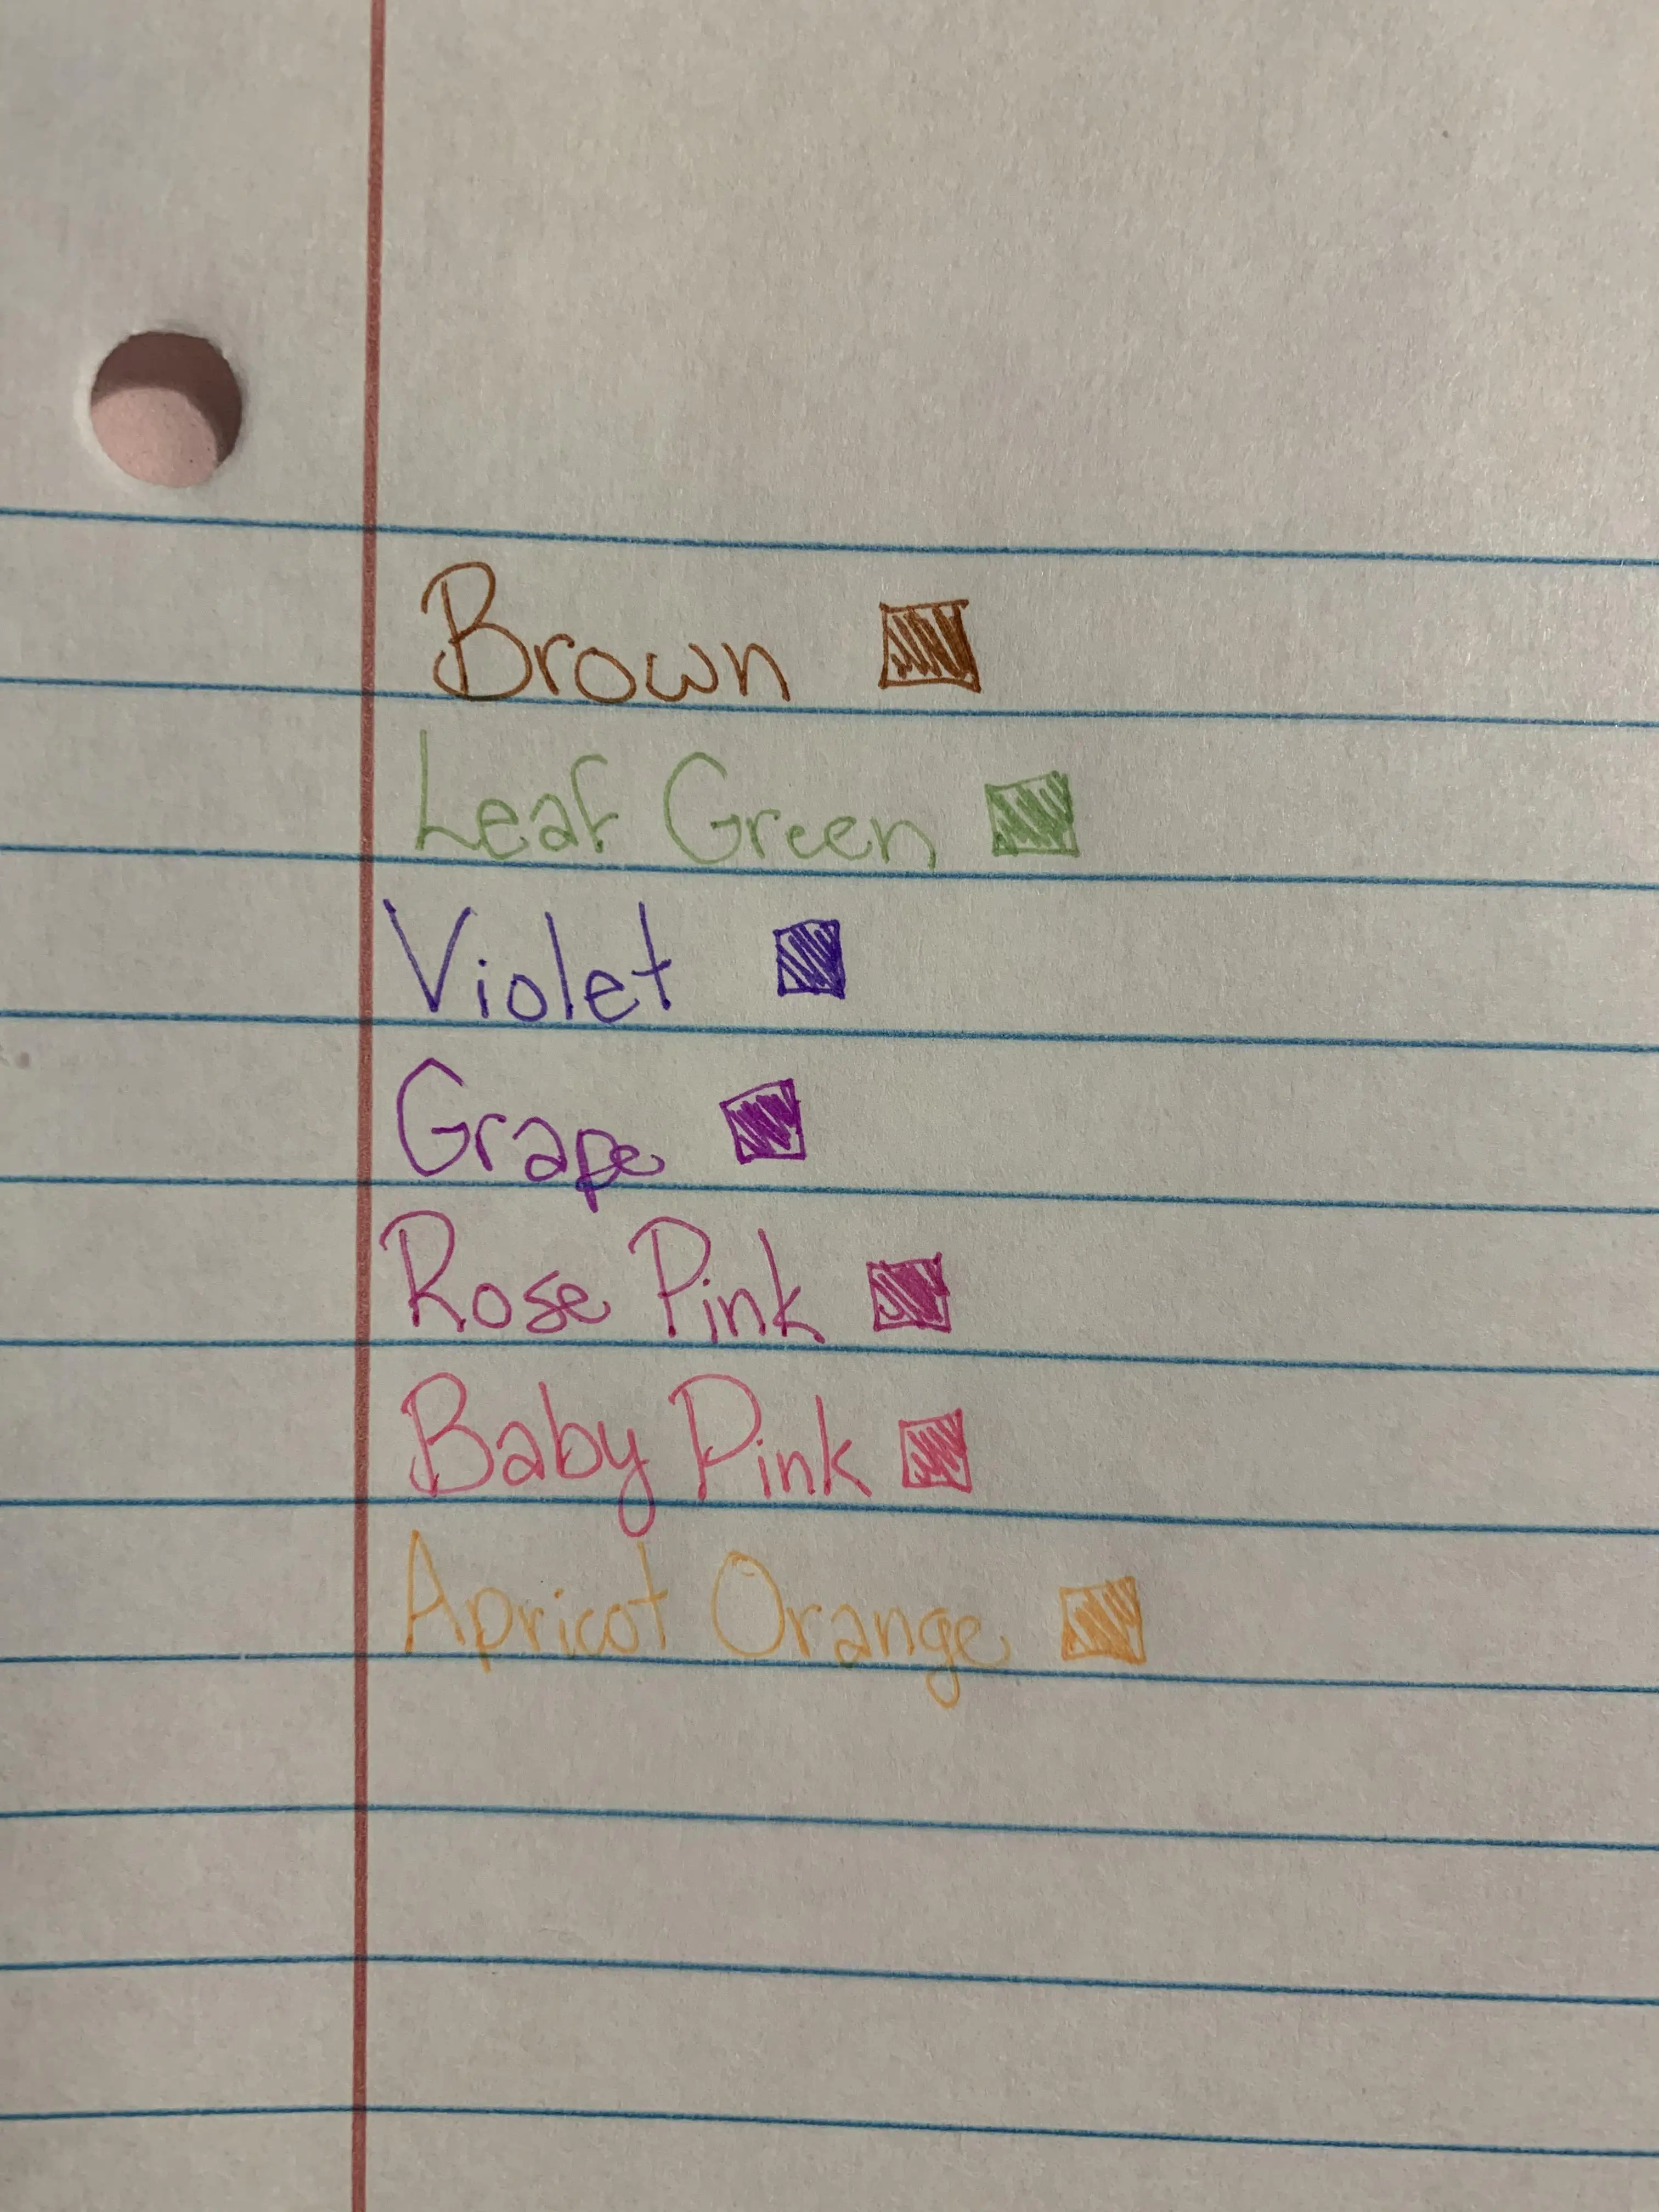 Brown
Leaf Green
Violet
Grape
Rose Pink
Baby Pink
Apricot Orange